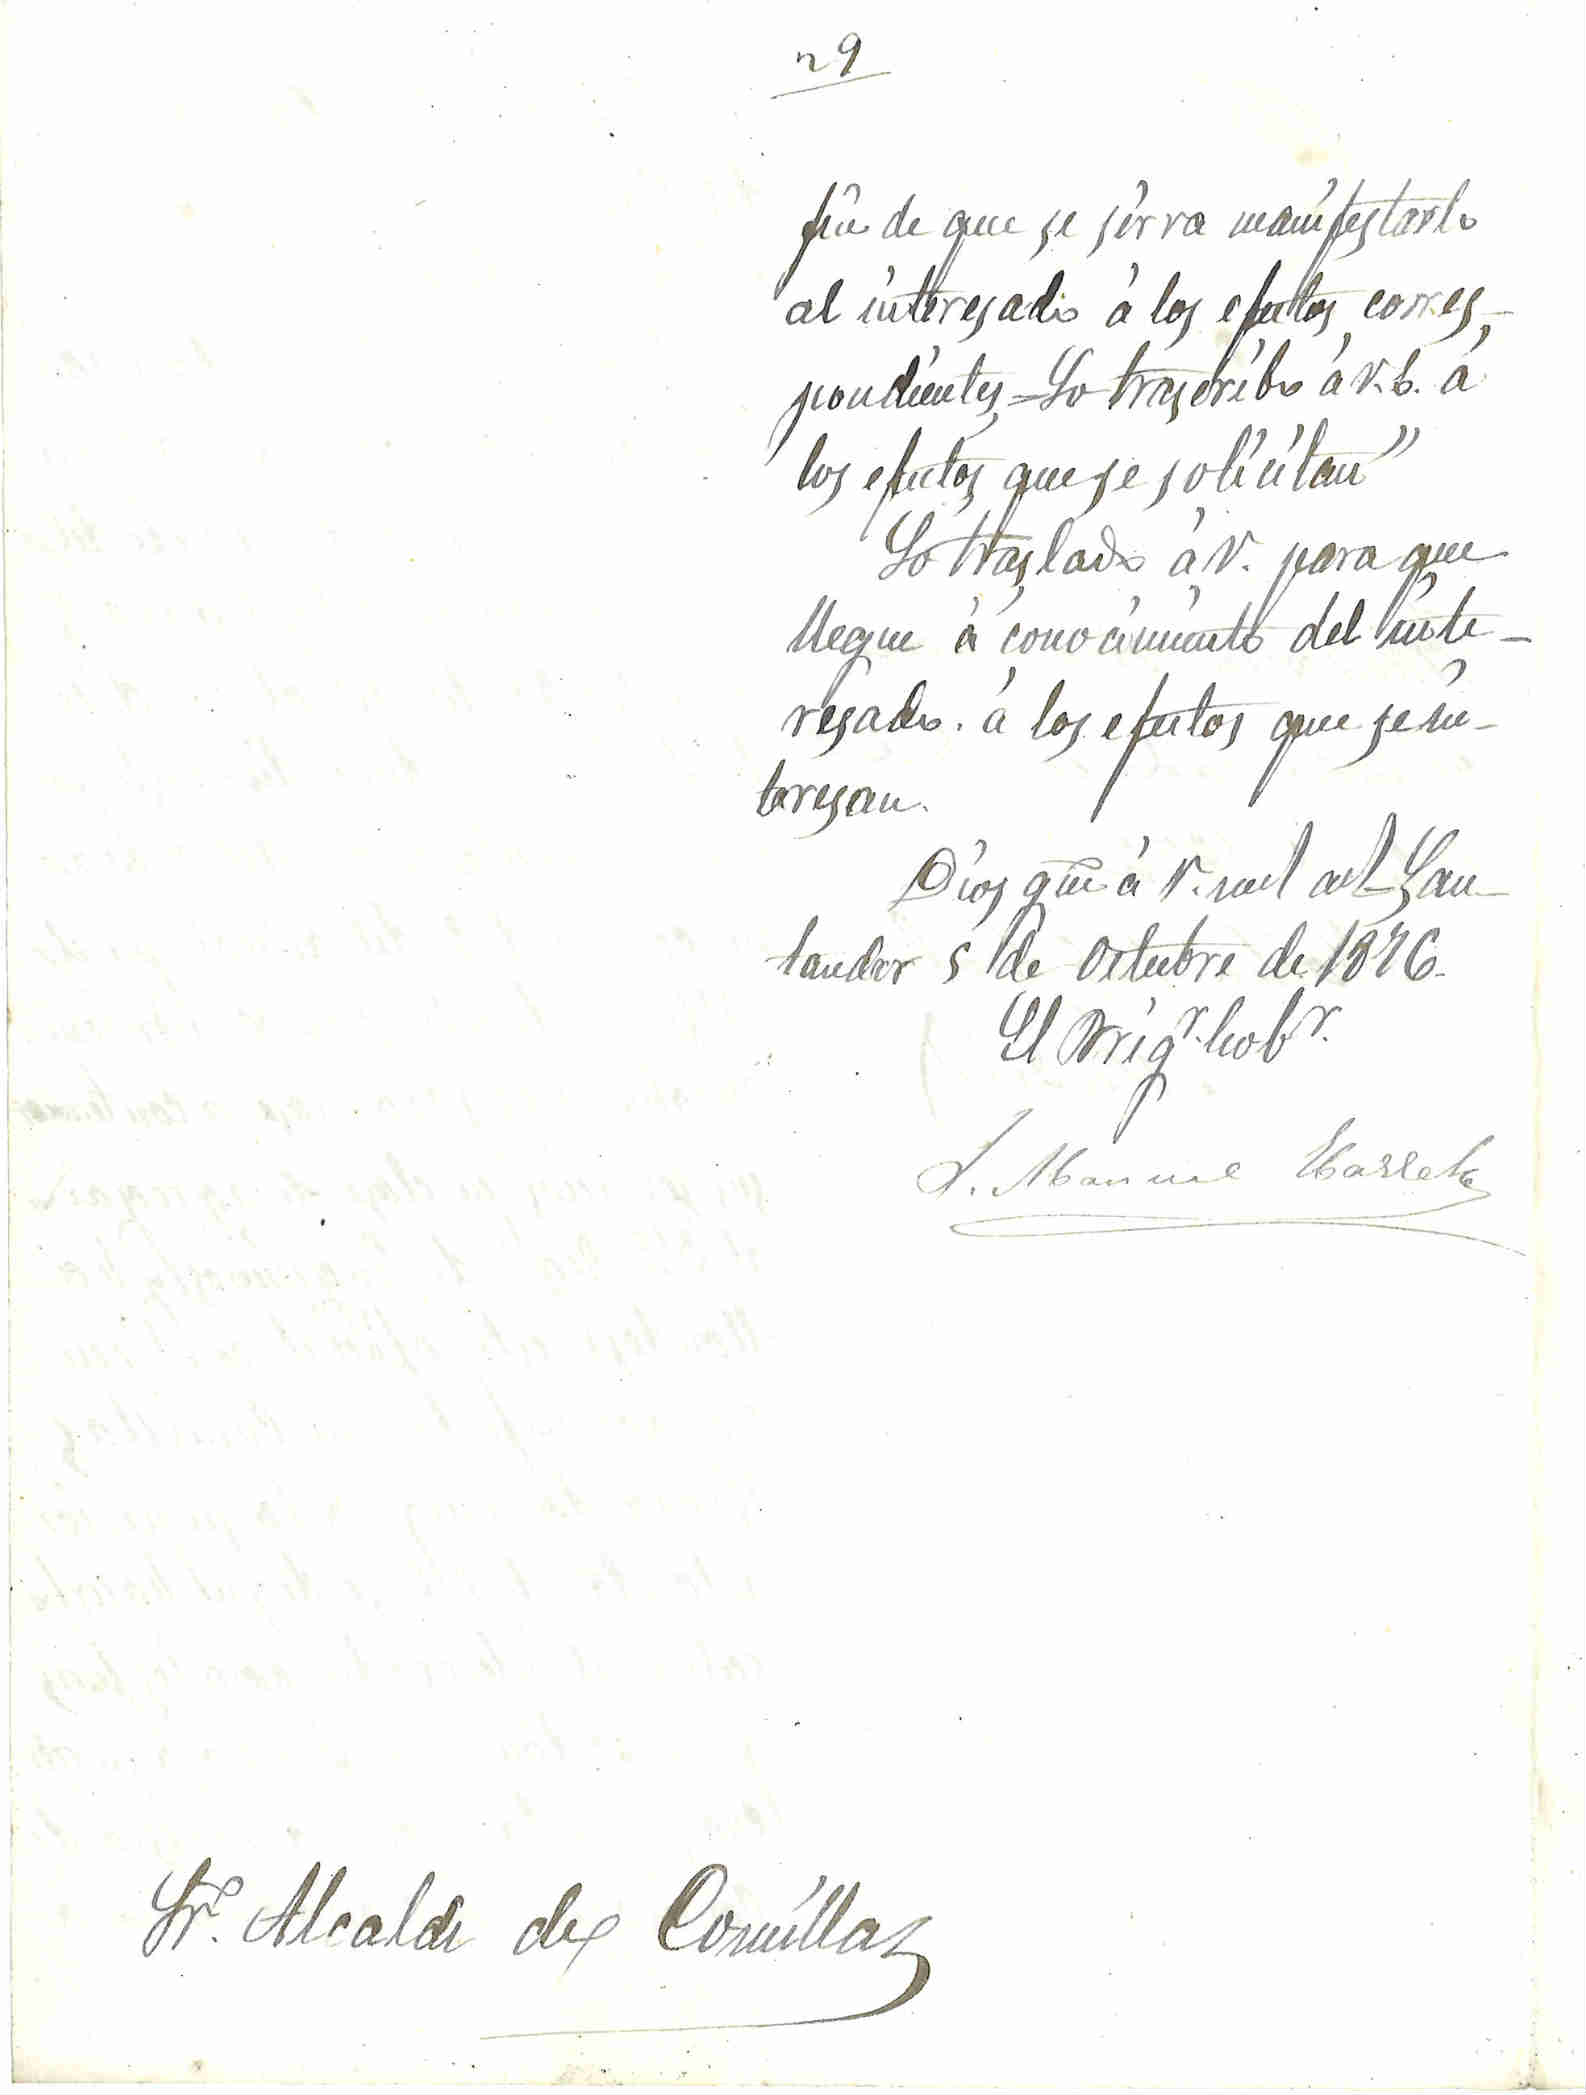 n 9
fin de que se sirva manifestarlo
al interesado á los efectos corres-
pondientes = Lo trascribo á V.S. á
los efectos que se solicitan"
Lo traslado á V. para que
llegue á conocimiento del inte-
resado. á los efectos que se in-
teresan.
Dios gūe á V. m.s a.s San-
tander 5 de Octubre de 1876.
El Brig.r Gob.r
Manuel
Sr. Alcalde de Comillas